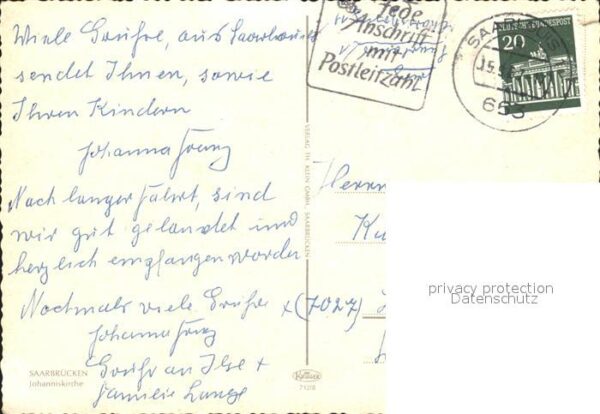 Viele Grüße, aus Saarbrücken
sendet Ihnen, sowie
Ihren Kindern
Johanna Franz
Nach langer Fahrt, sind
wir gut gelandet und
herzlich empfangen worden
Nochmals viele Grüße
Johanna Franz
Grüße an Ilse +
Familie Lange
SAARBRÜCKEN
Johanniskirche
VERLAG TH. KLEIN GMBH, SAARBRÜCKEN
In jede
Anschrift
mit
Postleitzahl
DEUTSCHE BUNDESPOST
20
663
Herrn
x (7027)
privacy protection
Datenschutz